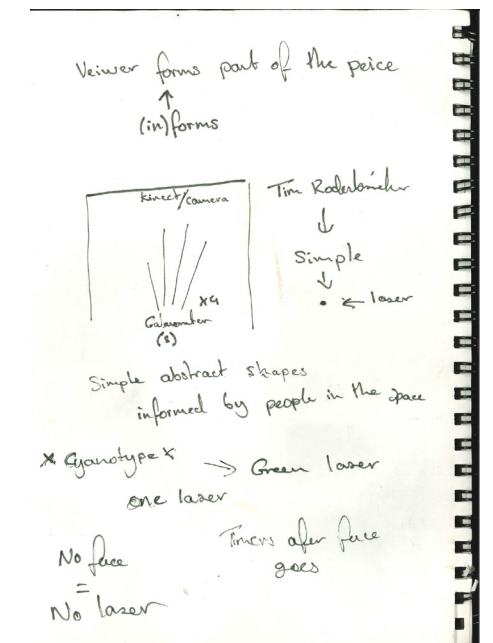 Veiwer forms part of the peice
↑
(in)forms
Kinect/camera
Tim Roderbröker
↓
Simple
↓
• ← laser
x4
Galvanometer
(s)
Simple abstract shapes
informed by people in the space
* Cyanotype *
→ Green laser
one laser
No face
=
No laser
Timers after face
goes